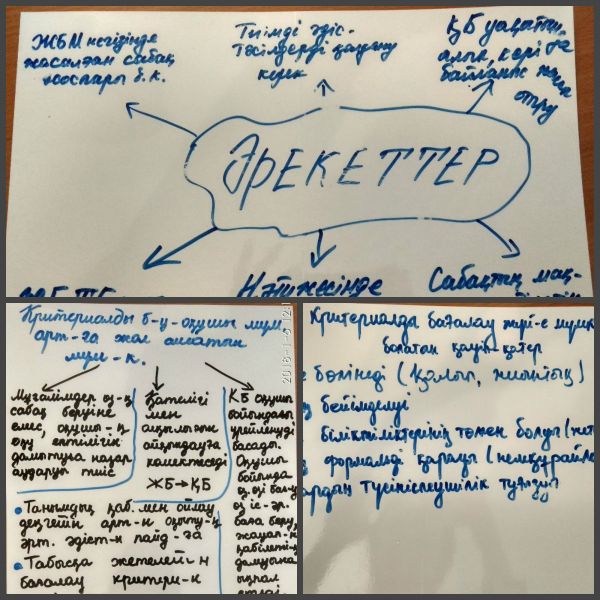 ЖБМ негізінде
жасалған сабақ
жоспары б.к.
Тиімді әдіс-
тәсілдерді қолдану
керек
ҚБ уақытын
алып, кері
байланыс
отыру
ӘРЕКЕТТЕР
Нәтижесінде
Сабақтың мақ-
Критериалды б-у-оқушы мүм.
арт-ға жол ашатын
мүм-к.
2018-1-9 12
Мұғалімдер өз-ң
сабақ беруіне
емес, оқушы-ң
оқу ептілігін
дамытуға назар
аударуы тиіс
Қателігі
мен
ақылы
айқындауға
көмектеседі
ЖБ→ҚБ
ҚБ оқушы
бойындағы
үрейленуді
басады.
Оқушы
бойында
өз.өзі
өз іс-әр.
баға беру,
жауап-к
қабілеті-ң
дамуына
ықпал
етеді.
• Танымдық қаб. мен ойлау
деңгейін арт-н оқыту-ң
әрт. әдіст-н пайд-ға
• Табысқа жетелейтін
бағалау критери-н
Критериалды бағалау жүй-е мүмк
болатын қауіп-қатер
бөлінеді (Қалып, жиынтық)
бейімделуі
біліктіліктерінің төмен болуы (жет
формальді қарауы (немқұрайлы
ардан түсініспеушілік тууы